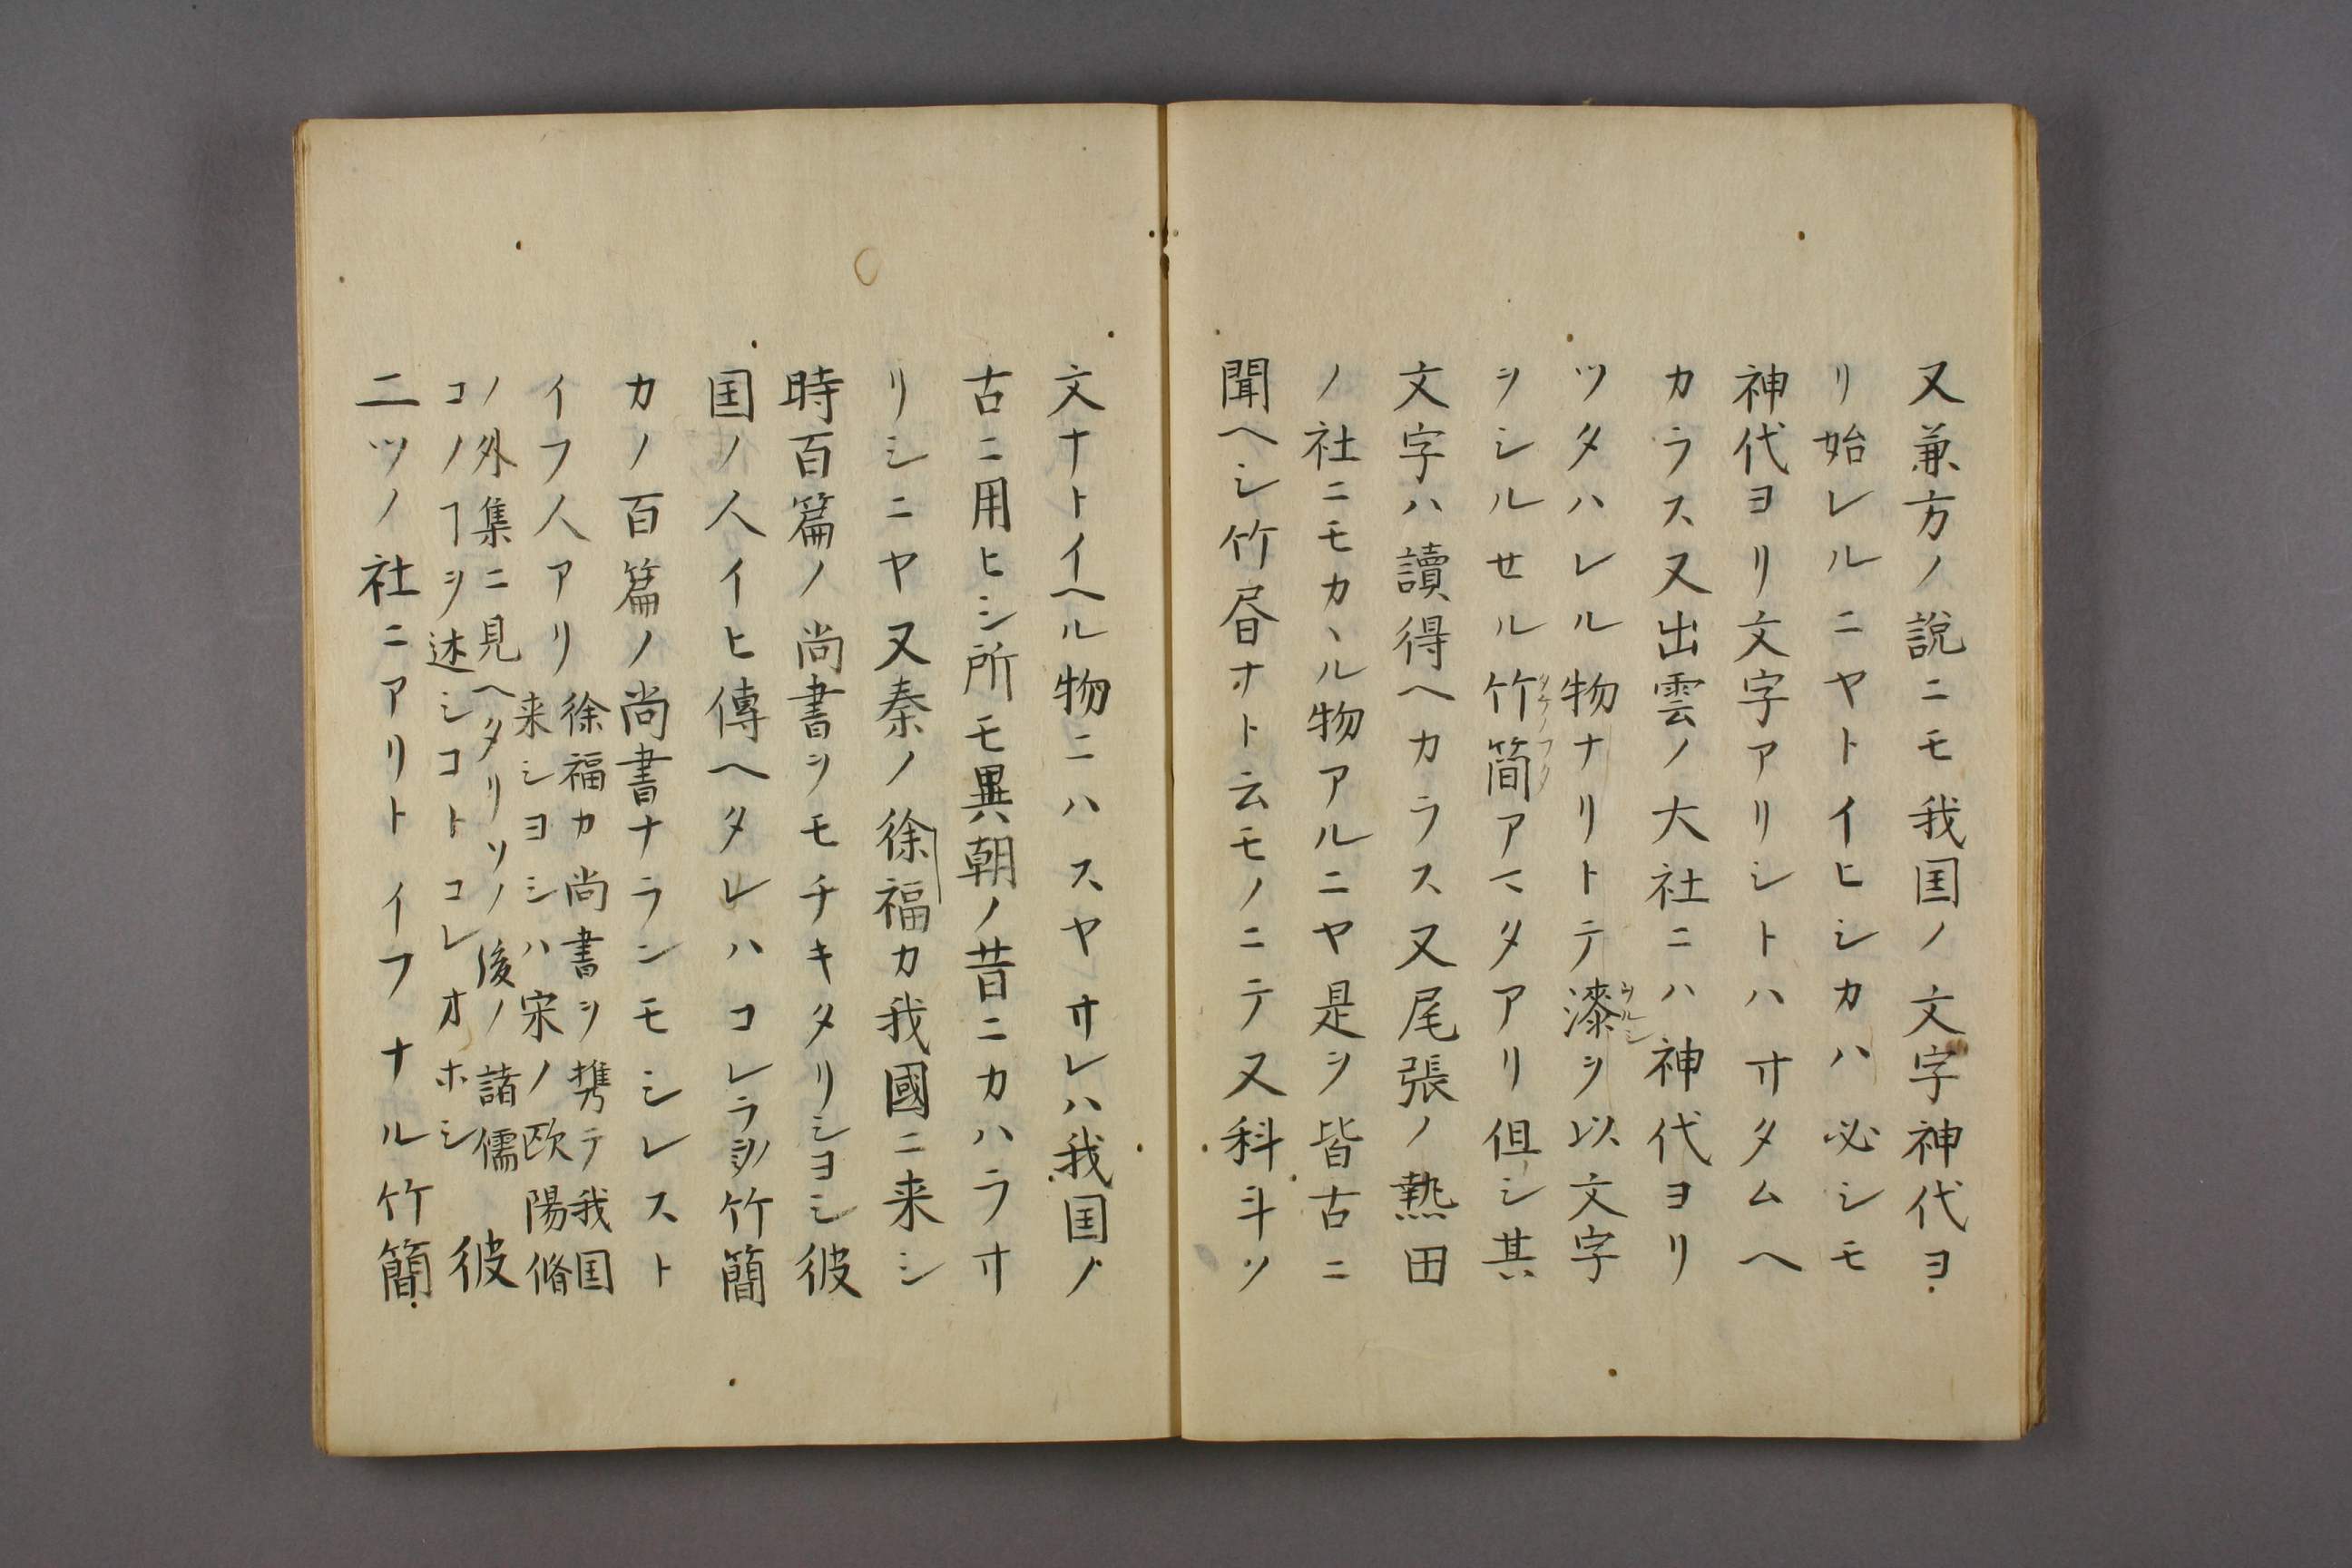 又兼方ノ説ニモ我国ノ文字神代ヨ
リ始レルニヤトイヒシカハ必シモ
神代ヨリ文字アリシトハサタムヘ
カラス又出雲ノ大社ニハ神代ヨリ
ツタハレル物ナリトテ漆ウルシヲ以文字
ヲシルせル竹簡タケノフタアマタアリ但シ其
文字ハ讀得ヘカラス又尾張ノ熱田
ノ社ニモカヽル物アルニヤ是ヲ皆古ニ
聞ヘシ竹昼ナト云モノニテ又科斗ソ
文ナトイヘル物ニハスヤサレハ我国ノ
古ニ用ヒシ所モ異朝ノ昔ニカハラサ
リシニヤ又秦ノ徐福カ我國ニ来シ
時百篇ノ尚書ヲモチキタリシヨシ彼
国ノ人イヒ傳ヘタレハコレラ竹簡
カノ百篇ノ尚書ナランモシレスト
イフ人アリ
徐福カ尚書ヲ携テ我国
来シヨシハ宋ノ欧陽脩
ノ外集ニ見ヘタリソノ後ノ諸儒
コノヿヲ述シコトコレオホシ
彼
二ツノ社ニアリトイフナル竹簡